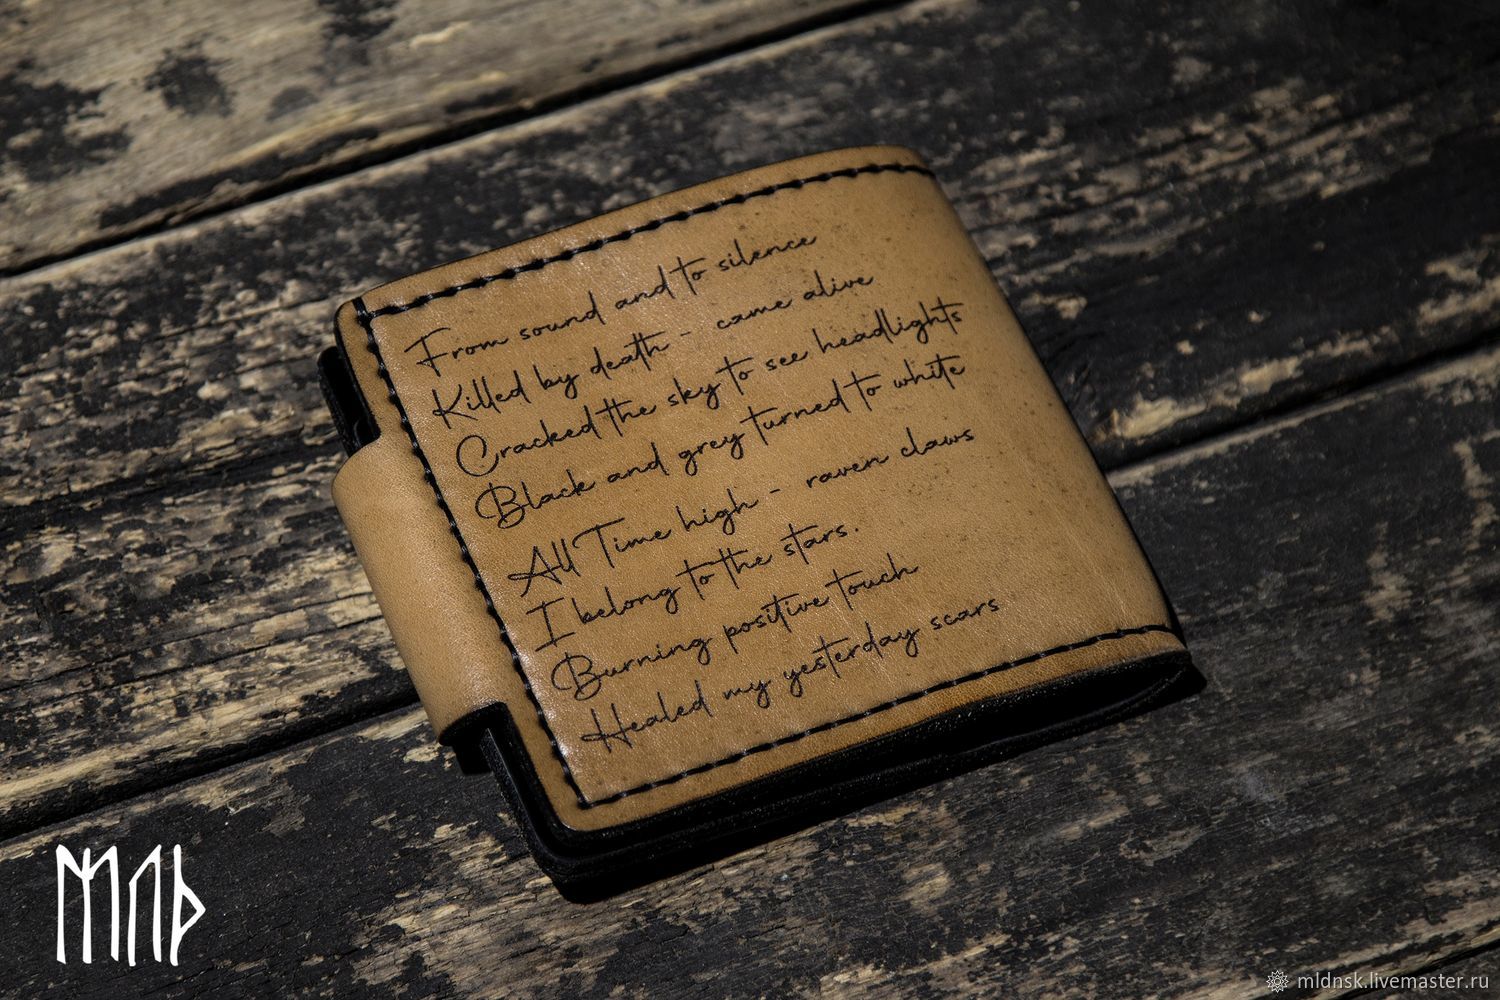 From sound and to silence
Killed by death - came alive
Cracked the sky to see headlights
Black and grey turned to white
All Time high - raven claws
I belong to the stars.
Burning positive touch
Healed my yesterday scars
mldnsk.livemaster.ru